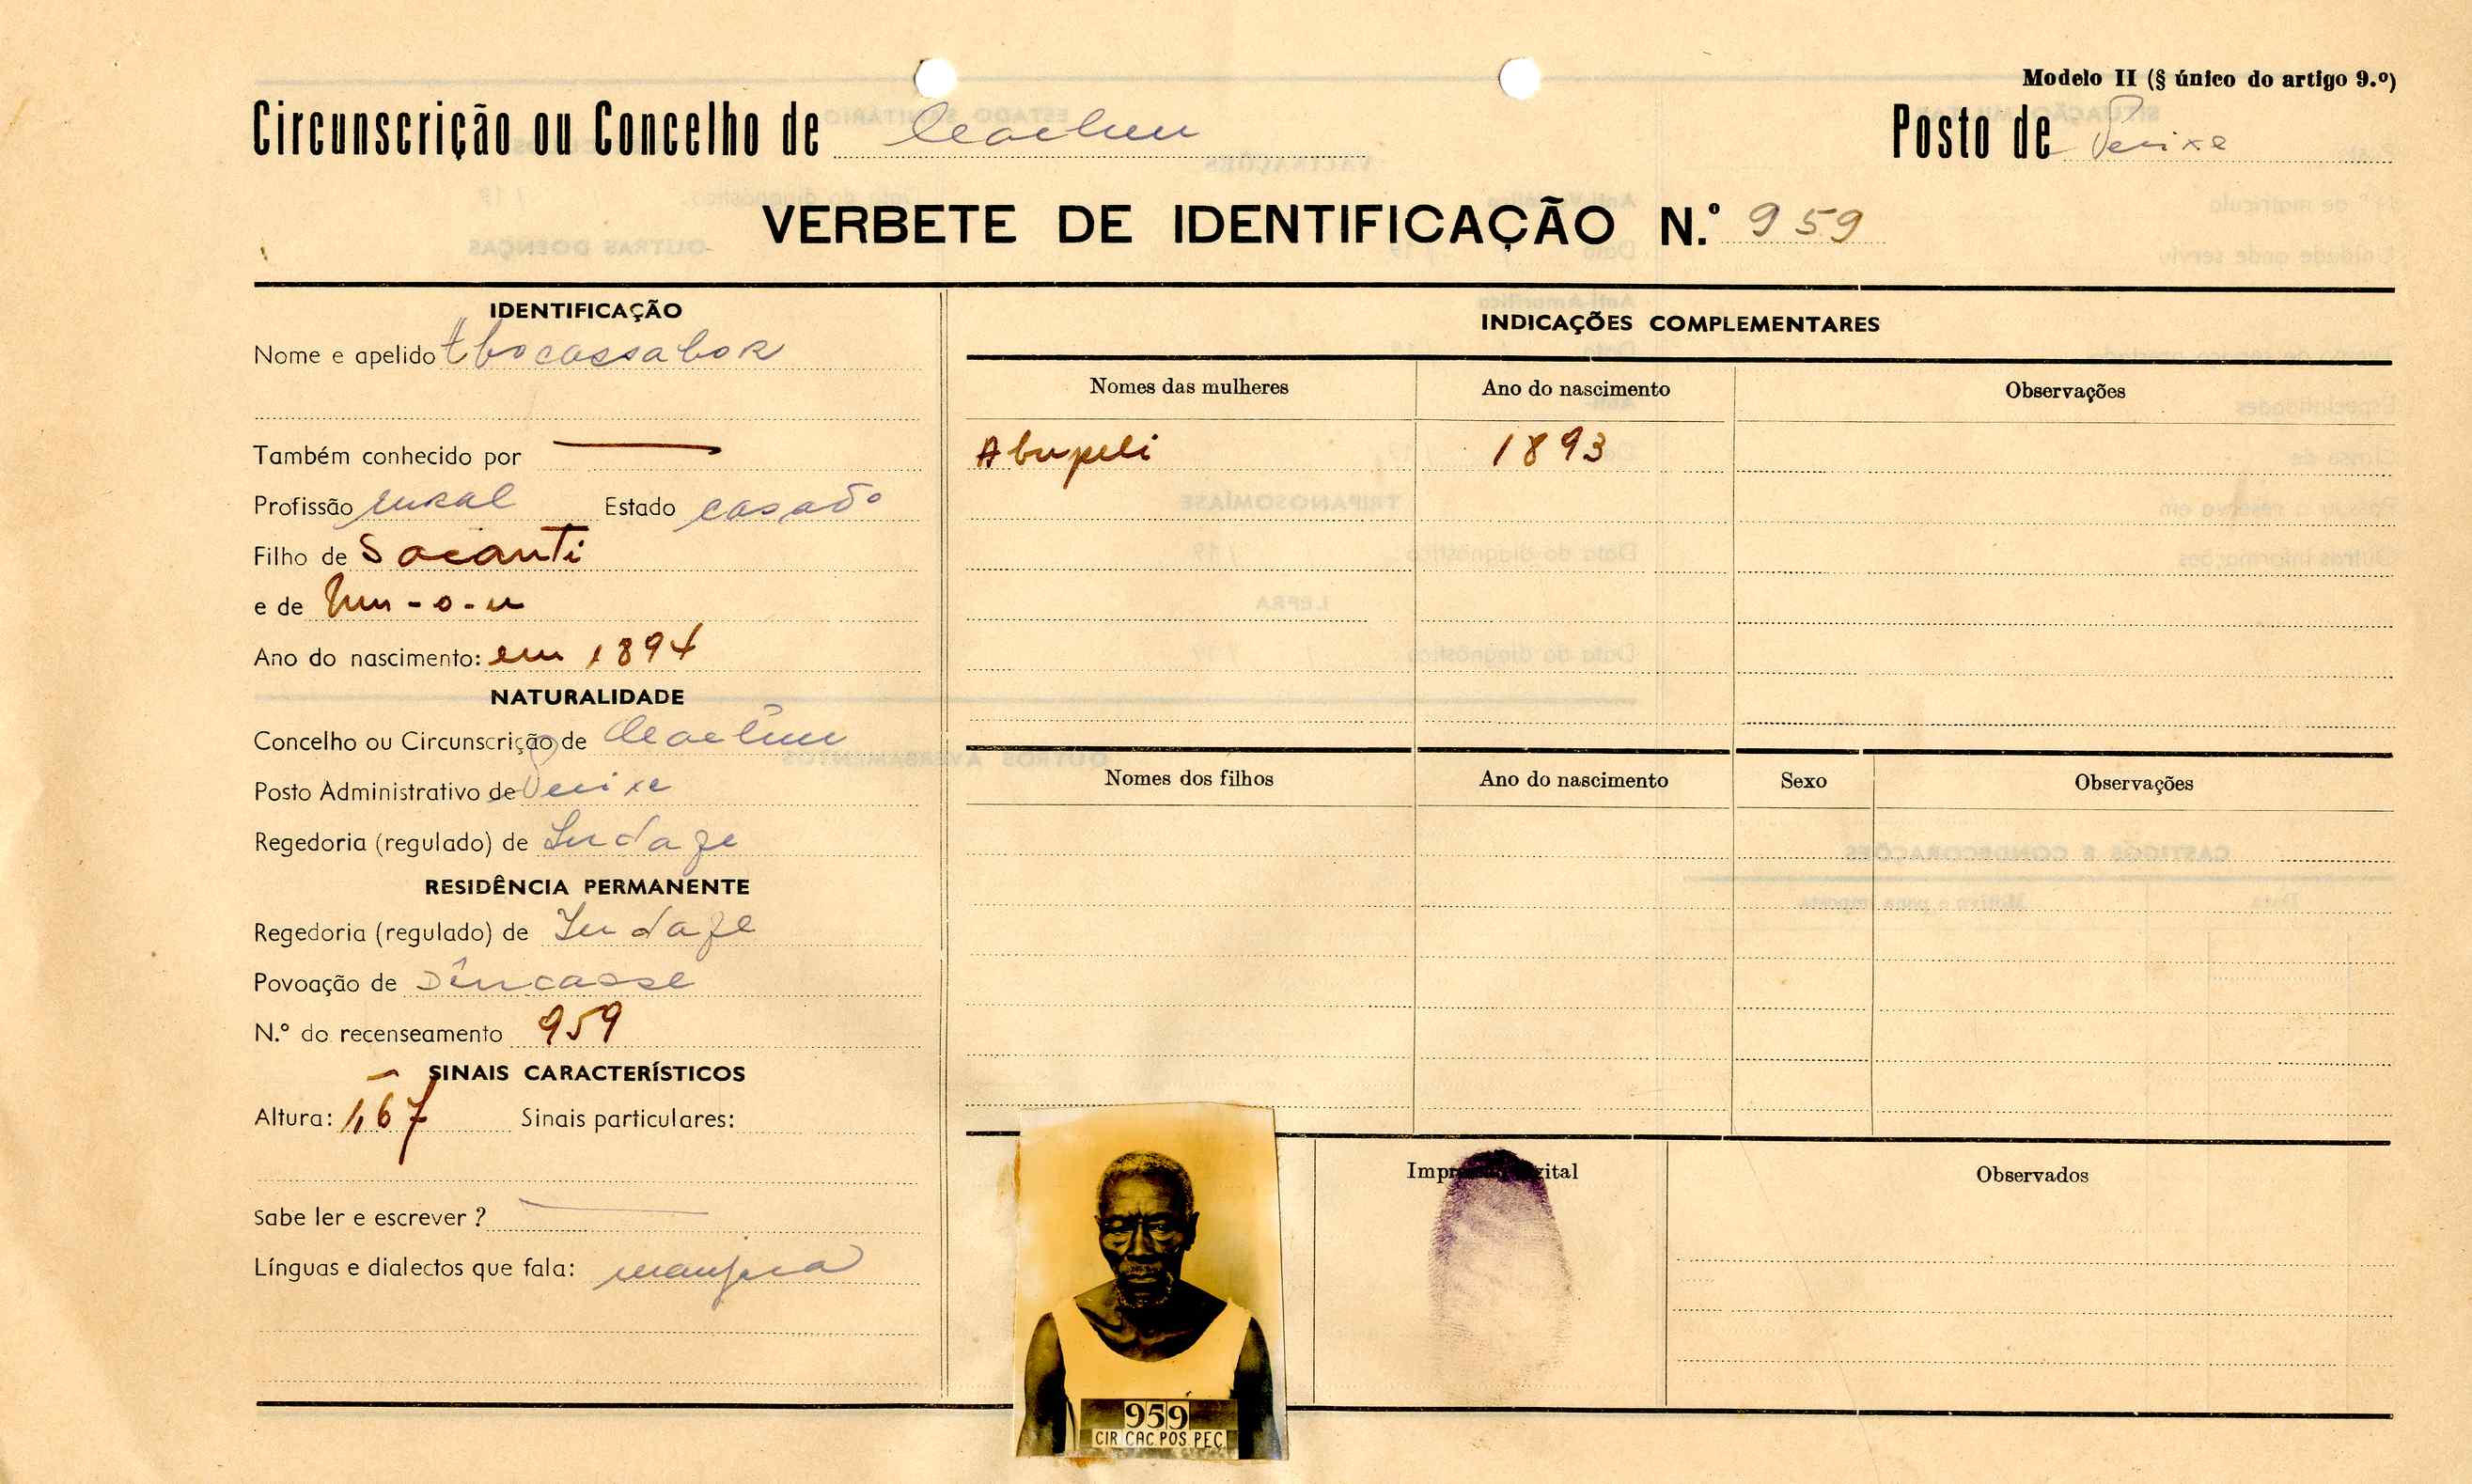 Modelo II (§ único do artigo 9.º)
Circunscrição ou Concelho de Cacheu Posto de
VERBETE DE IDENTIFICAÇÃO N.º 959
IDENTIFICAÇÃO
Nome e apelido
Também conhecido por
Profissão rural Estado casado
Filho de Sacanti
e de
Ano do nascimento: em 1894
NATURALIDADE
Concelho ou Circunscrição de Cacheu
Posto Administrativo de
Regedoria (regulado) de
RESIDÊNCIA PERMANENTE
Regedoria (regulado) de
Povoação de
N.º do recenseamento 959
SINAIS CARACTERÍSTICOS
Altura: 1,67 Sinais particulares:
Sabe ler e escrever ?
Línguas e dialectos que fala:
INDICAÇÕES COMPLEMENTARES
Nomes das mulheres Ano do nascimento Observações
Abupeli 1893
Nomes dos filhos Ano do nascimento Sexo Observações
Observados
959
CIR CAC. POS. PEC.